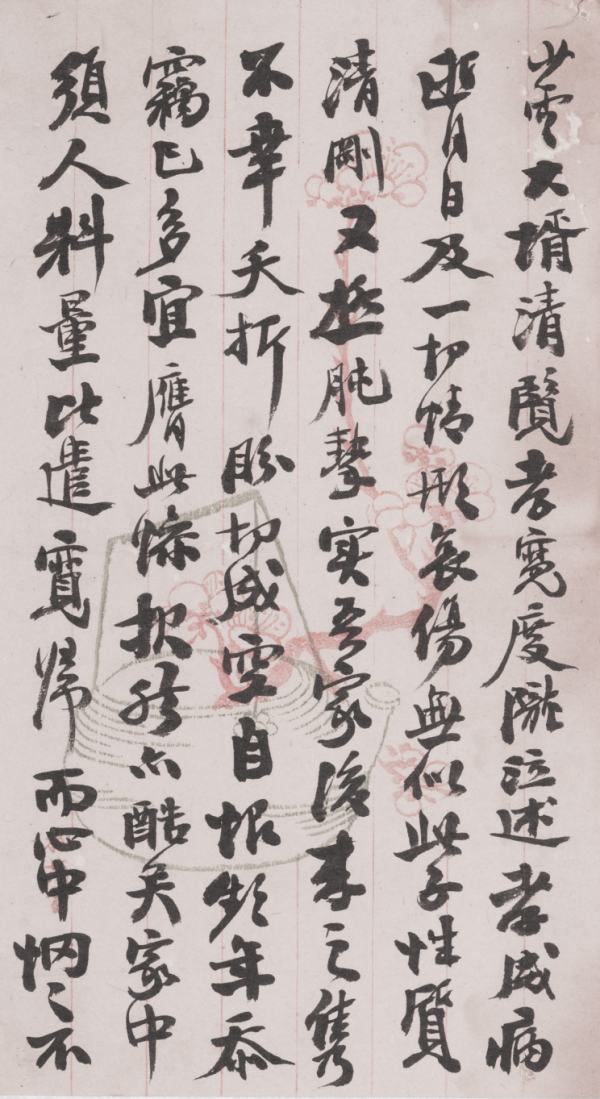 少雲大壻清覽孝寬度隴泣述孝威病
月日及一切情形哀傷無似此子性質
清剛又極肫摯实吾家後來之雋
不幸夭折盼切成空自恨頻年忝
竊已多宜膺此慘報然亦酷矣家中
須人料量比遣寬歸而心中惘〻不